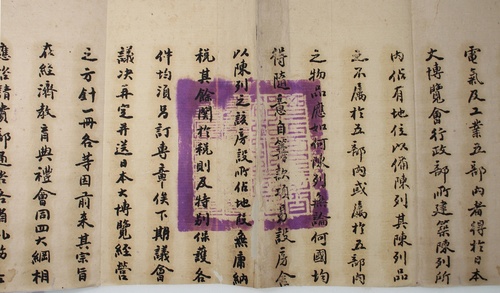 電氣及工業五部內者得於日本
大博覽會行政部所建築陳列所
內佔有地位以備陳列其陳列品
之不屬於五部內或屬於五部內
之物品應如何陳列無論何國均
得隨意自籌款項另設房舍
以陳列之該房設所佔地段無庸納
稅其餘關於稅則及特別保護各
件均須另訂專章俟下期議會
議決再定并送日本大博覽經營
之方針一冊各等因前來其宗旨
在經濟教育典禮會同四大綱相
應咨請貴部通咨各省